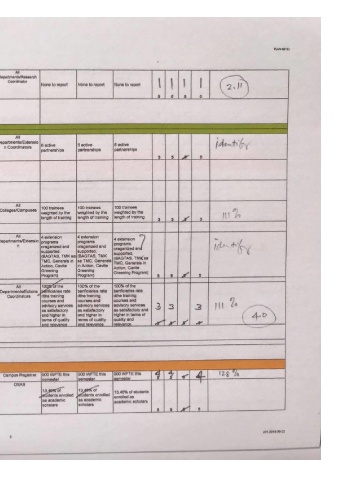 All
Departments/Research
Coordinator
None to report
None to report
None to report
1 1 1 1
2.11
All
Departments/Extension
n Coordinators
6 active
partnerships
6 active
partnerships
6 active
partnerships
identify
All
Colleges/Campuses
100 trainees
weighted by the
length of training
100 trainees
weighted by the
length of training
100 trainees
weighted by the
length of training
111 %
All
Departments/Extension
4 extension
programs
organized and
supported.
(BAGTAS, TMK as
TMG, Generals in
Action, Cavite
Greening
Program)
4 extension
programs
organized and
supported.
(BAGTAS, TMK
as TMG, Generals
in Action, Cavite
Greening
Program)
4 extension
programs
organized and
supported.
(BAGTAS, TMK as
TMG, Generals in
Action, Cavite
Greening Program)
identify
All
Coordinators
100% of the
benficiaries rate
the training
courses and
advisory services
as satisfactory
and higher in
terms of quality
and relevance
100% of the
benficiaries rate
the training
courses and
advisory services
as satisfactory
and higher in
terms of quality
and relevance
100% of the
benficiaries rate
the training
courses and
advisory services
as satisfactory and
higher in terms of
quality and
relevance
3 3 3
111 %
4.0
Campus Registrar
900 WFTE this
semester
900 WFTE this
semester
900 WFTE this
semester
4 4 4
128 %
OSAS
13.40% of
students enrolled
as academic
scholars
13.40% of
students enrolled
as academic
scholars
13.40% of students
enrolled as
academic scholars